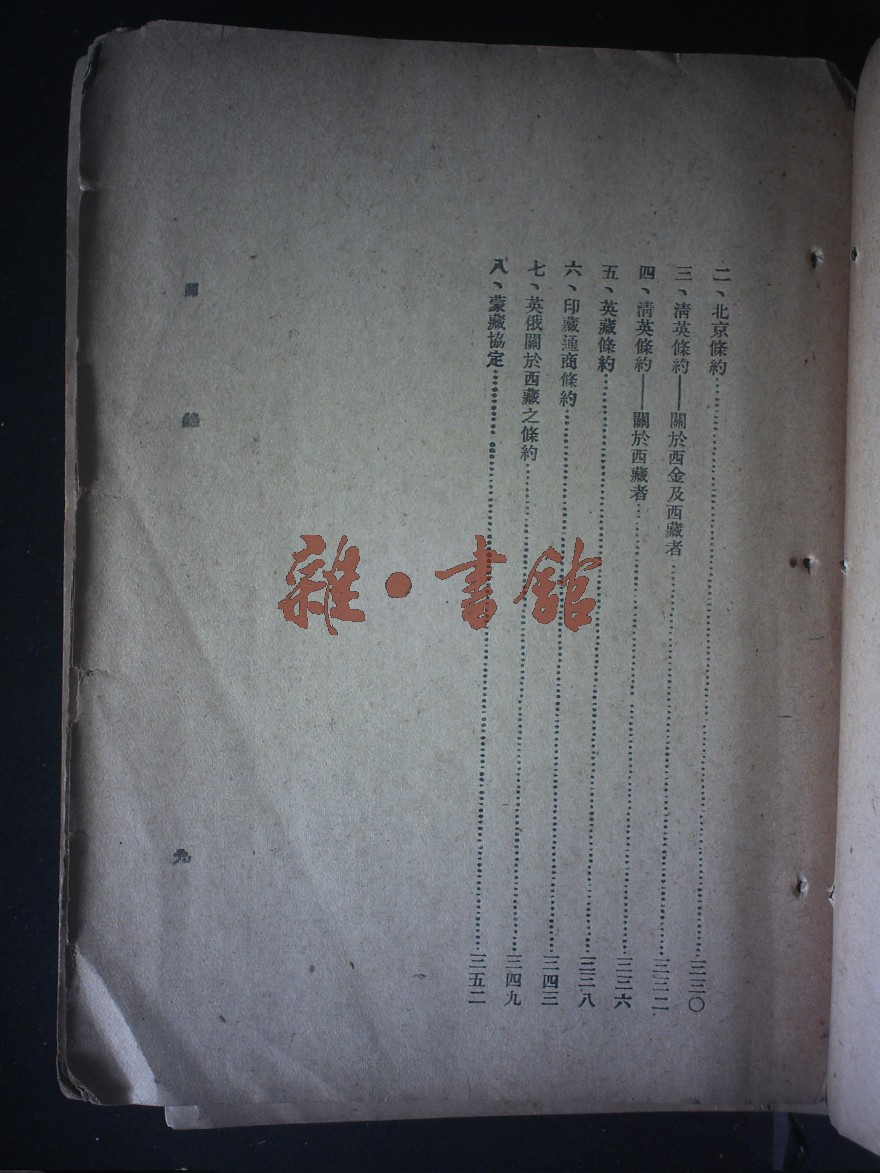 二、北京條約……三三〇
三、淸英條約——關於西金及西藏者……三三二
四、淸英條約——關於西藏者……三三六
五、英藏條約……三三八
六、印藏通商條約……三四三
七、英俄關於西藏之條約……三四九
八、蒙藏協定……三五二
九
雜·書館